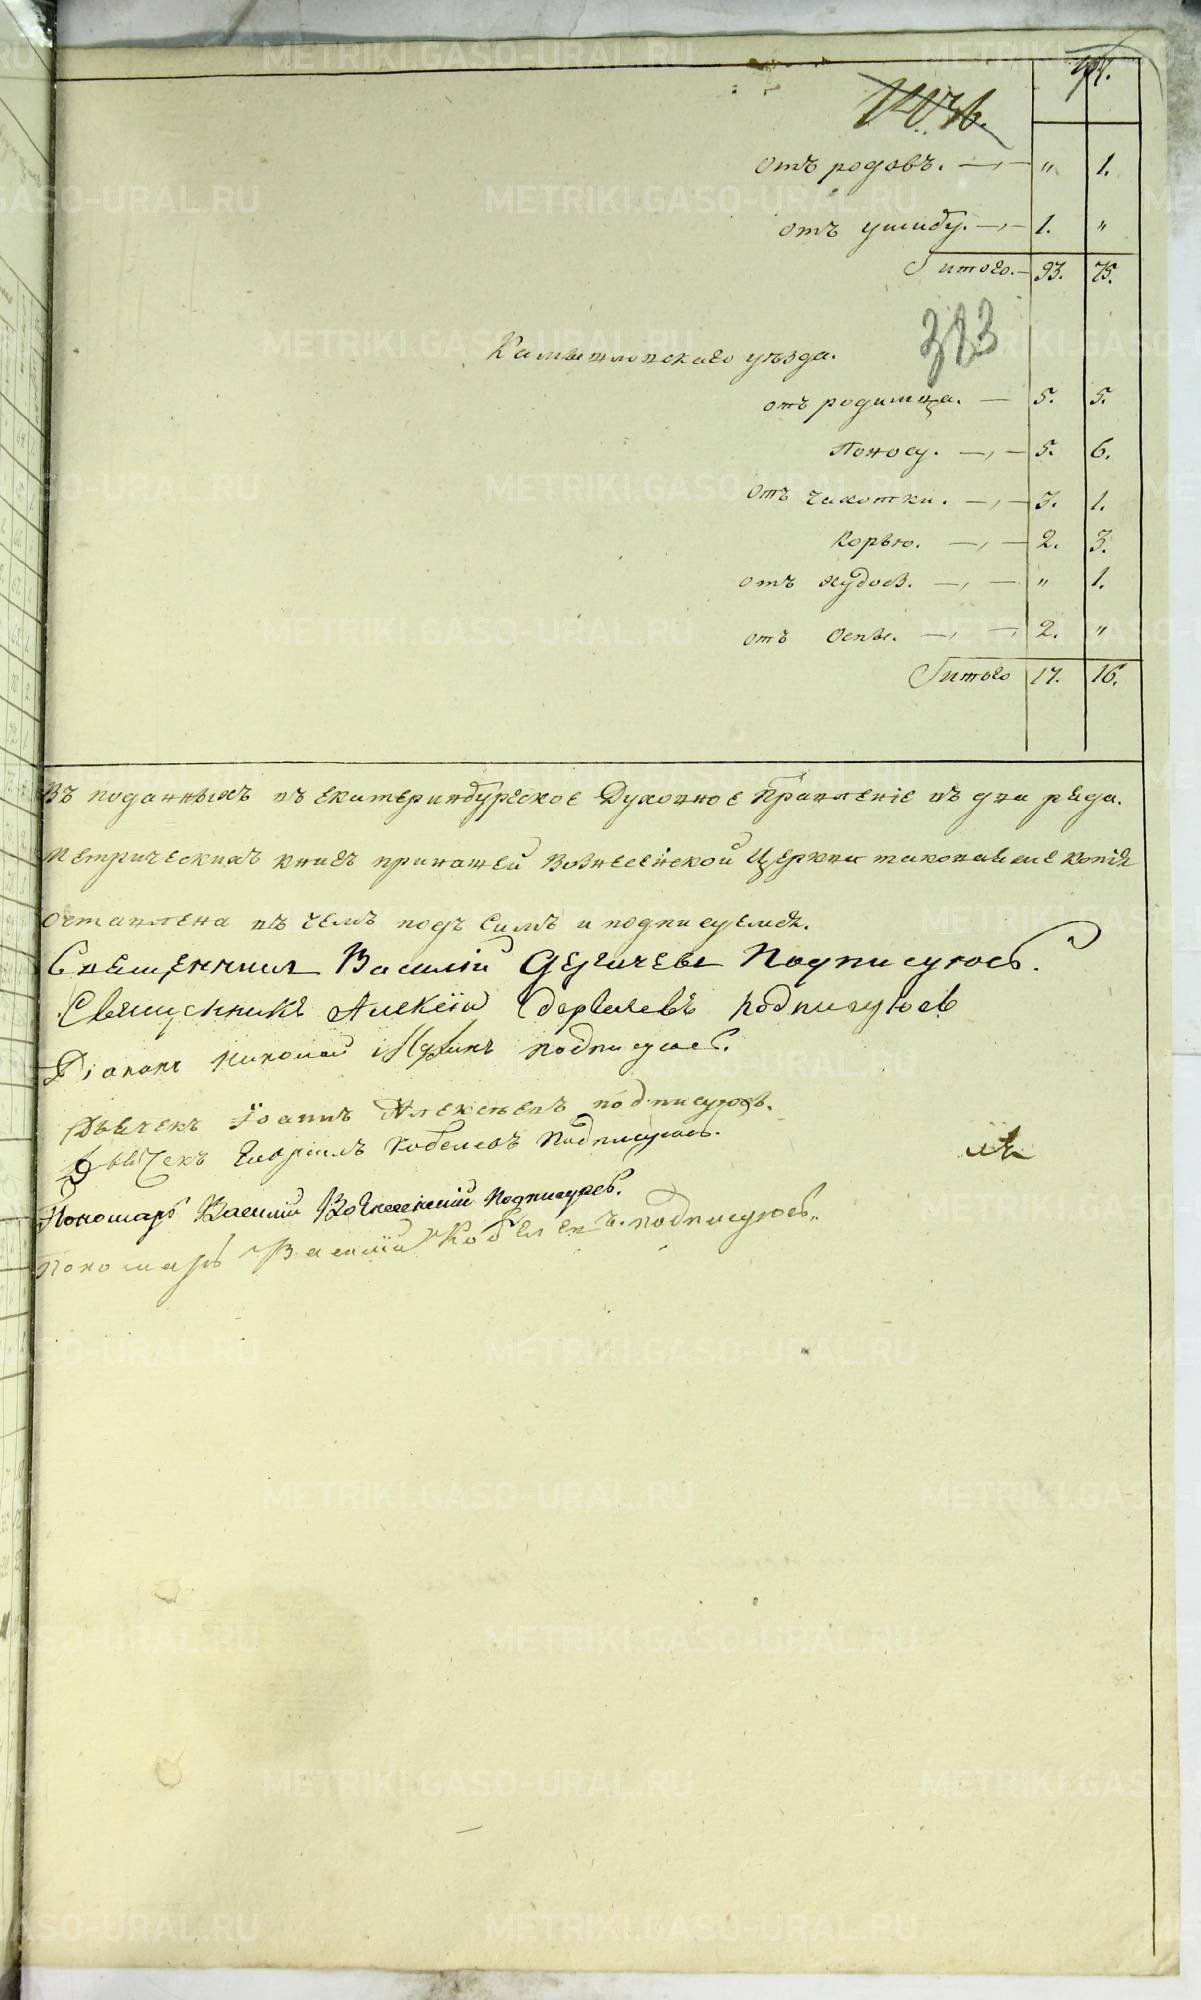 отъ родовъ. — „ 1.
отъ ушибу. — 1. „
Итого. — 93. 75.
383
Камышловскаго уѣзда.
отъ родимца. — 5. 5.
Поносу. — 5. 6.
отъ чахотки. — 3. 1.
Корью. — 2. 3.
отъ худов. — „ 1.
отъ Оспы. — 2. „
Итого 17. 16.
Въ поданныхъ въ екатеринбургское Духовное Правленіе въ два ряда.
метрическихъ книгъ при нашей Вознесенской Церкви таковая же копія
оставлена въ чемъ подъ симъ и подписуемся.
Священникъ Василій Дергачевъ Подписуюсь.
Священникъ Алексій Дергачевъ подписуюсь
Діаконъ Николай подписуюсь.
Дьячекъ Іоаннъ Алексѣевъ подписуюсь.
Дьячекъ Гавріилъ Кобелевъ Подписуюсь.
Пономарь Василий Вознесенский подписуюсь.
пономарь Василій Кобелевъ. подписуюсь.
METRIKI.GASO-URAL.RU